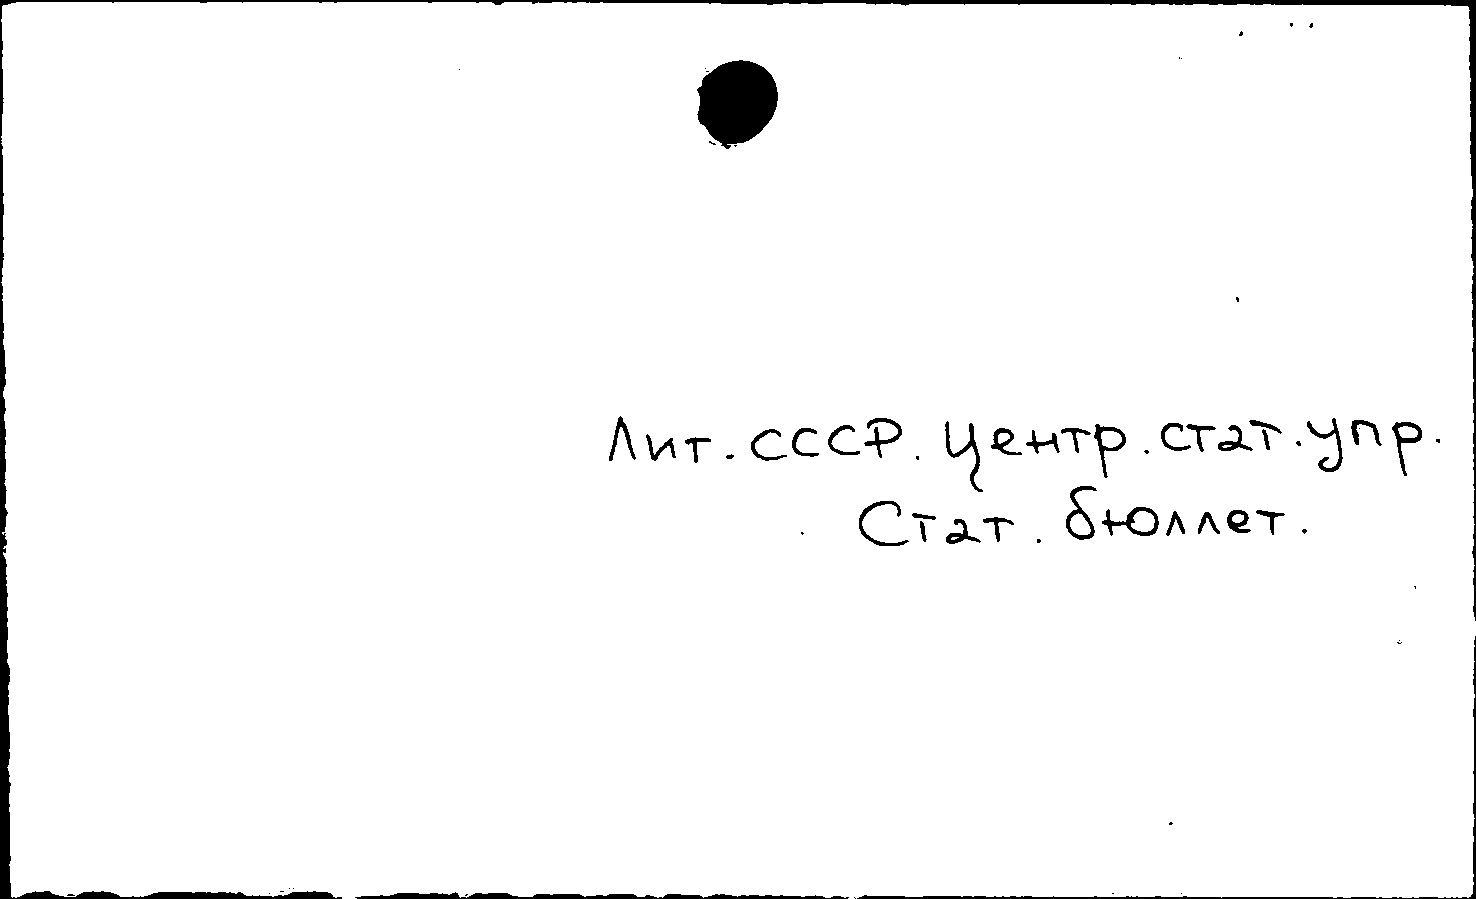 Лит. СССР. Центр. стат. упр.
Стат. бюллет.